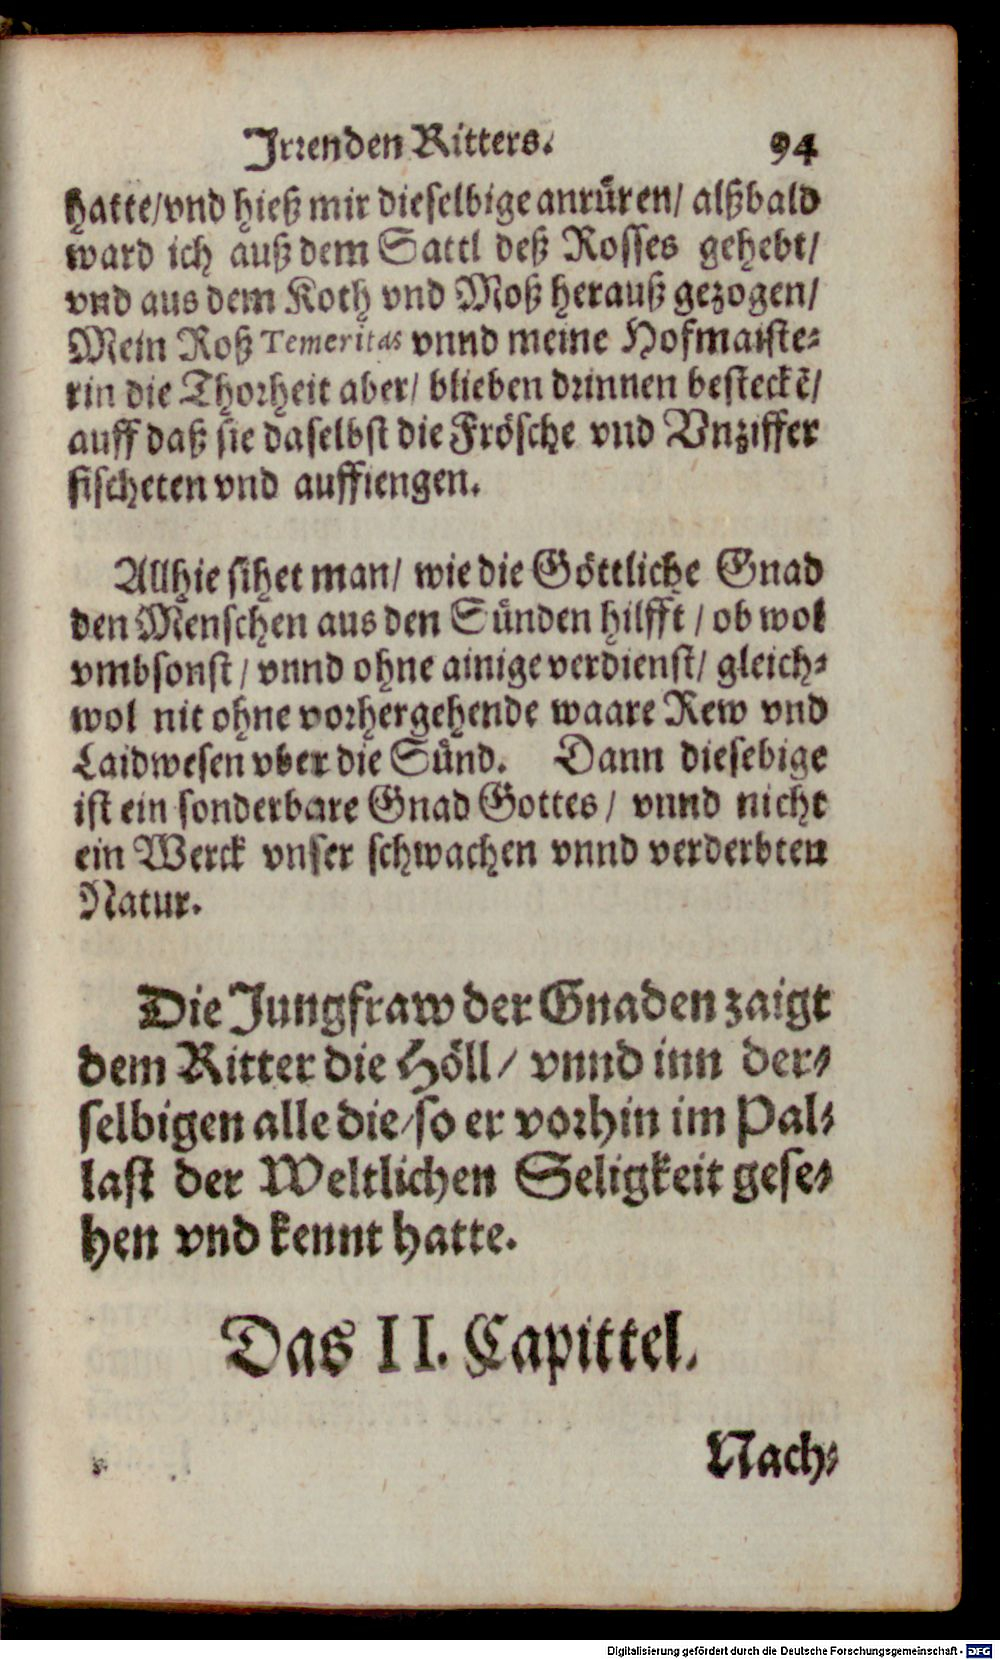 Irrenden Ritters. 94
hatte/vnd hieß mir dieselbige anrüren/ alßbald
ward ich auß dem Sattl deß Rosses gehebt/
vnd aus dem Koth vnd Moß herauß gezogen/
Mein Roß Temeritas vnnd meine Hofmaiste-
rin die Thorheit aber/ blieben drinnen besteckē/
auff daß sie daselbst die Frösche vnd Vnziffer
fischeten vnd auffiengen.
Allhie sihet man/ wie die Göttliche Gnad
den Menschen aus den Sünden hilfft / ob wol
vmbsonst / vnnd ohne ainige verdienst/ gleich-
wol nit ohne vorhergehende waare Rew vnd
Laidwesen vber die Sünd. Dann diesebige
ist ein sonderbare Gnad Gottes / vnnd nicht
ein Werck vnser schwachen vnnd verderbten
Natur.
Die Jungfraw der Gnaden zaigt
dem Ritter die Höll / vnnd inn der-
selbigen alle die/so er vorhin im Pal-
last der Weltlichen Seligkeit gese-
hen vnd kennt hatte.
Das II. Capittel.
Nach-
Digitalisierung gefördert durch die Deutsche Forschungsgemeinschaft - DFG